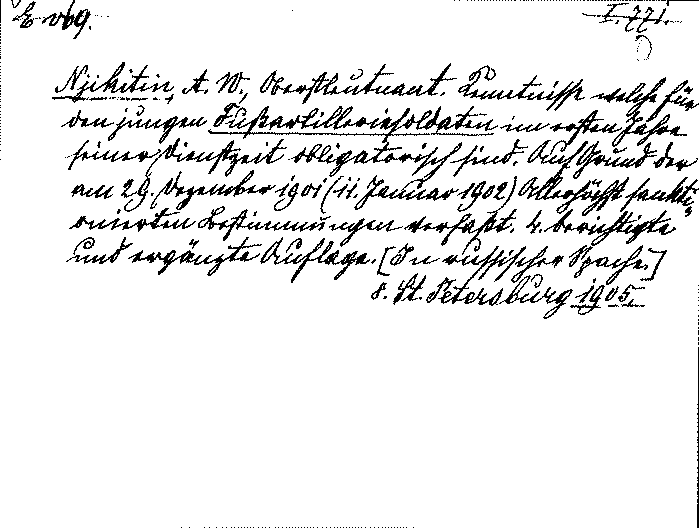 E 069.
I. 771.
Njikitin, A. W., Oberstleutnant. Kenntnisse welche für
den jungen Fußartilleriesoldaten im ersten Jahre
seiner Dienstzeit obligatorisch sind. Auf Grund der
am 29. Dezember 1901 (11. Januar 1902) Allerhöchst sankti-
onierten Bestimmungen verfaßt. 4. berichtigte
und ergänzte Auflage. [In russischer Spache.]
8. St. Petersburg 1905.